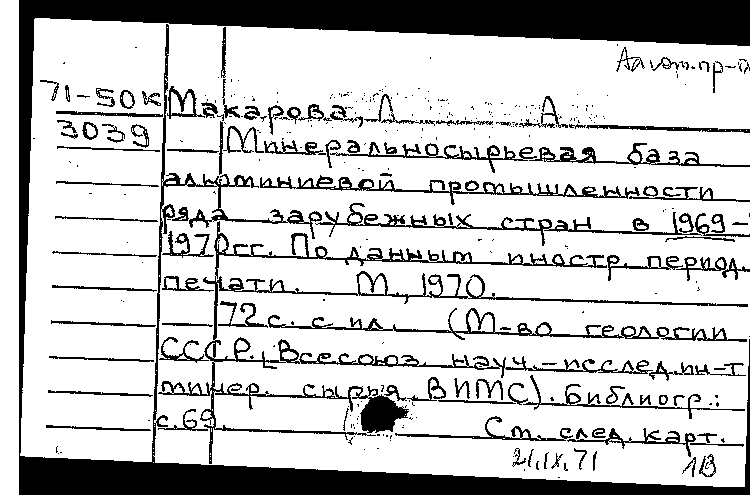 Алюм. пр-
71-50к Макарова, Л А
3039 Минеральносырьевая база
алюминиевой промышленности
ряда зарубежных стран в 1969-
1970гг. По данным иностр. период.
печати. М., 1970.
72 с. с ил. (М-во геологии
СССР. Всесоюз. науч.-исслед. ин-т
минер. сырья. ВИМС). Библиогр.:
с. 69.
См. след. карт.
21.IX.71 1В